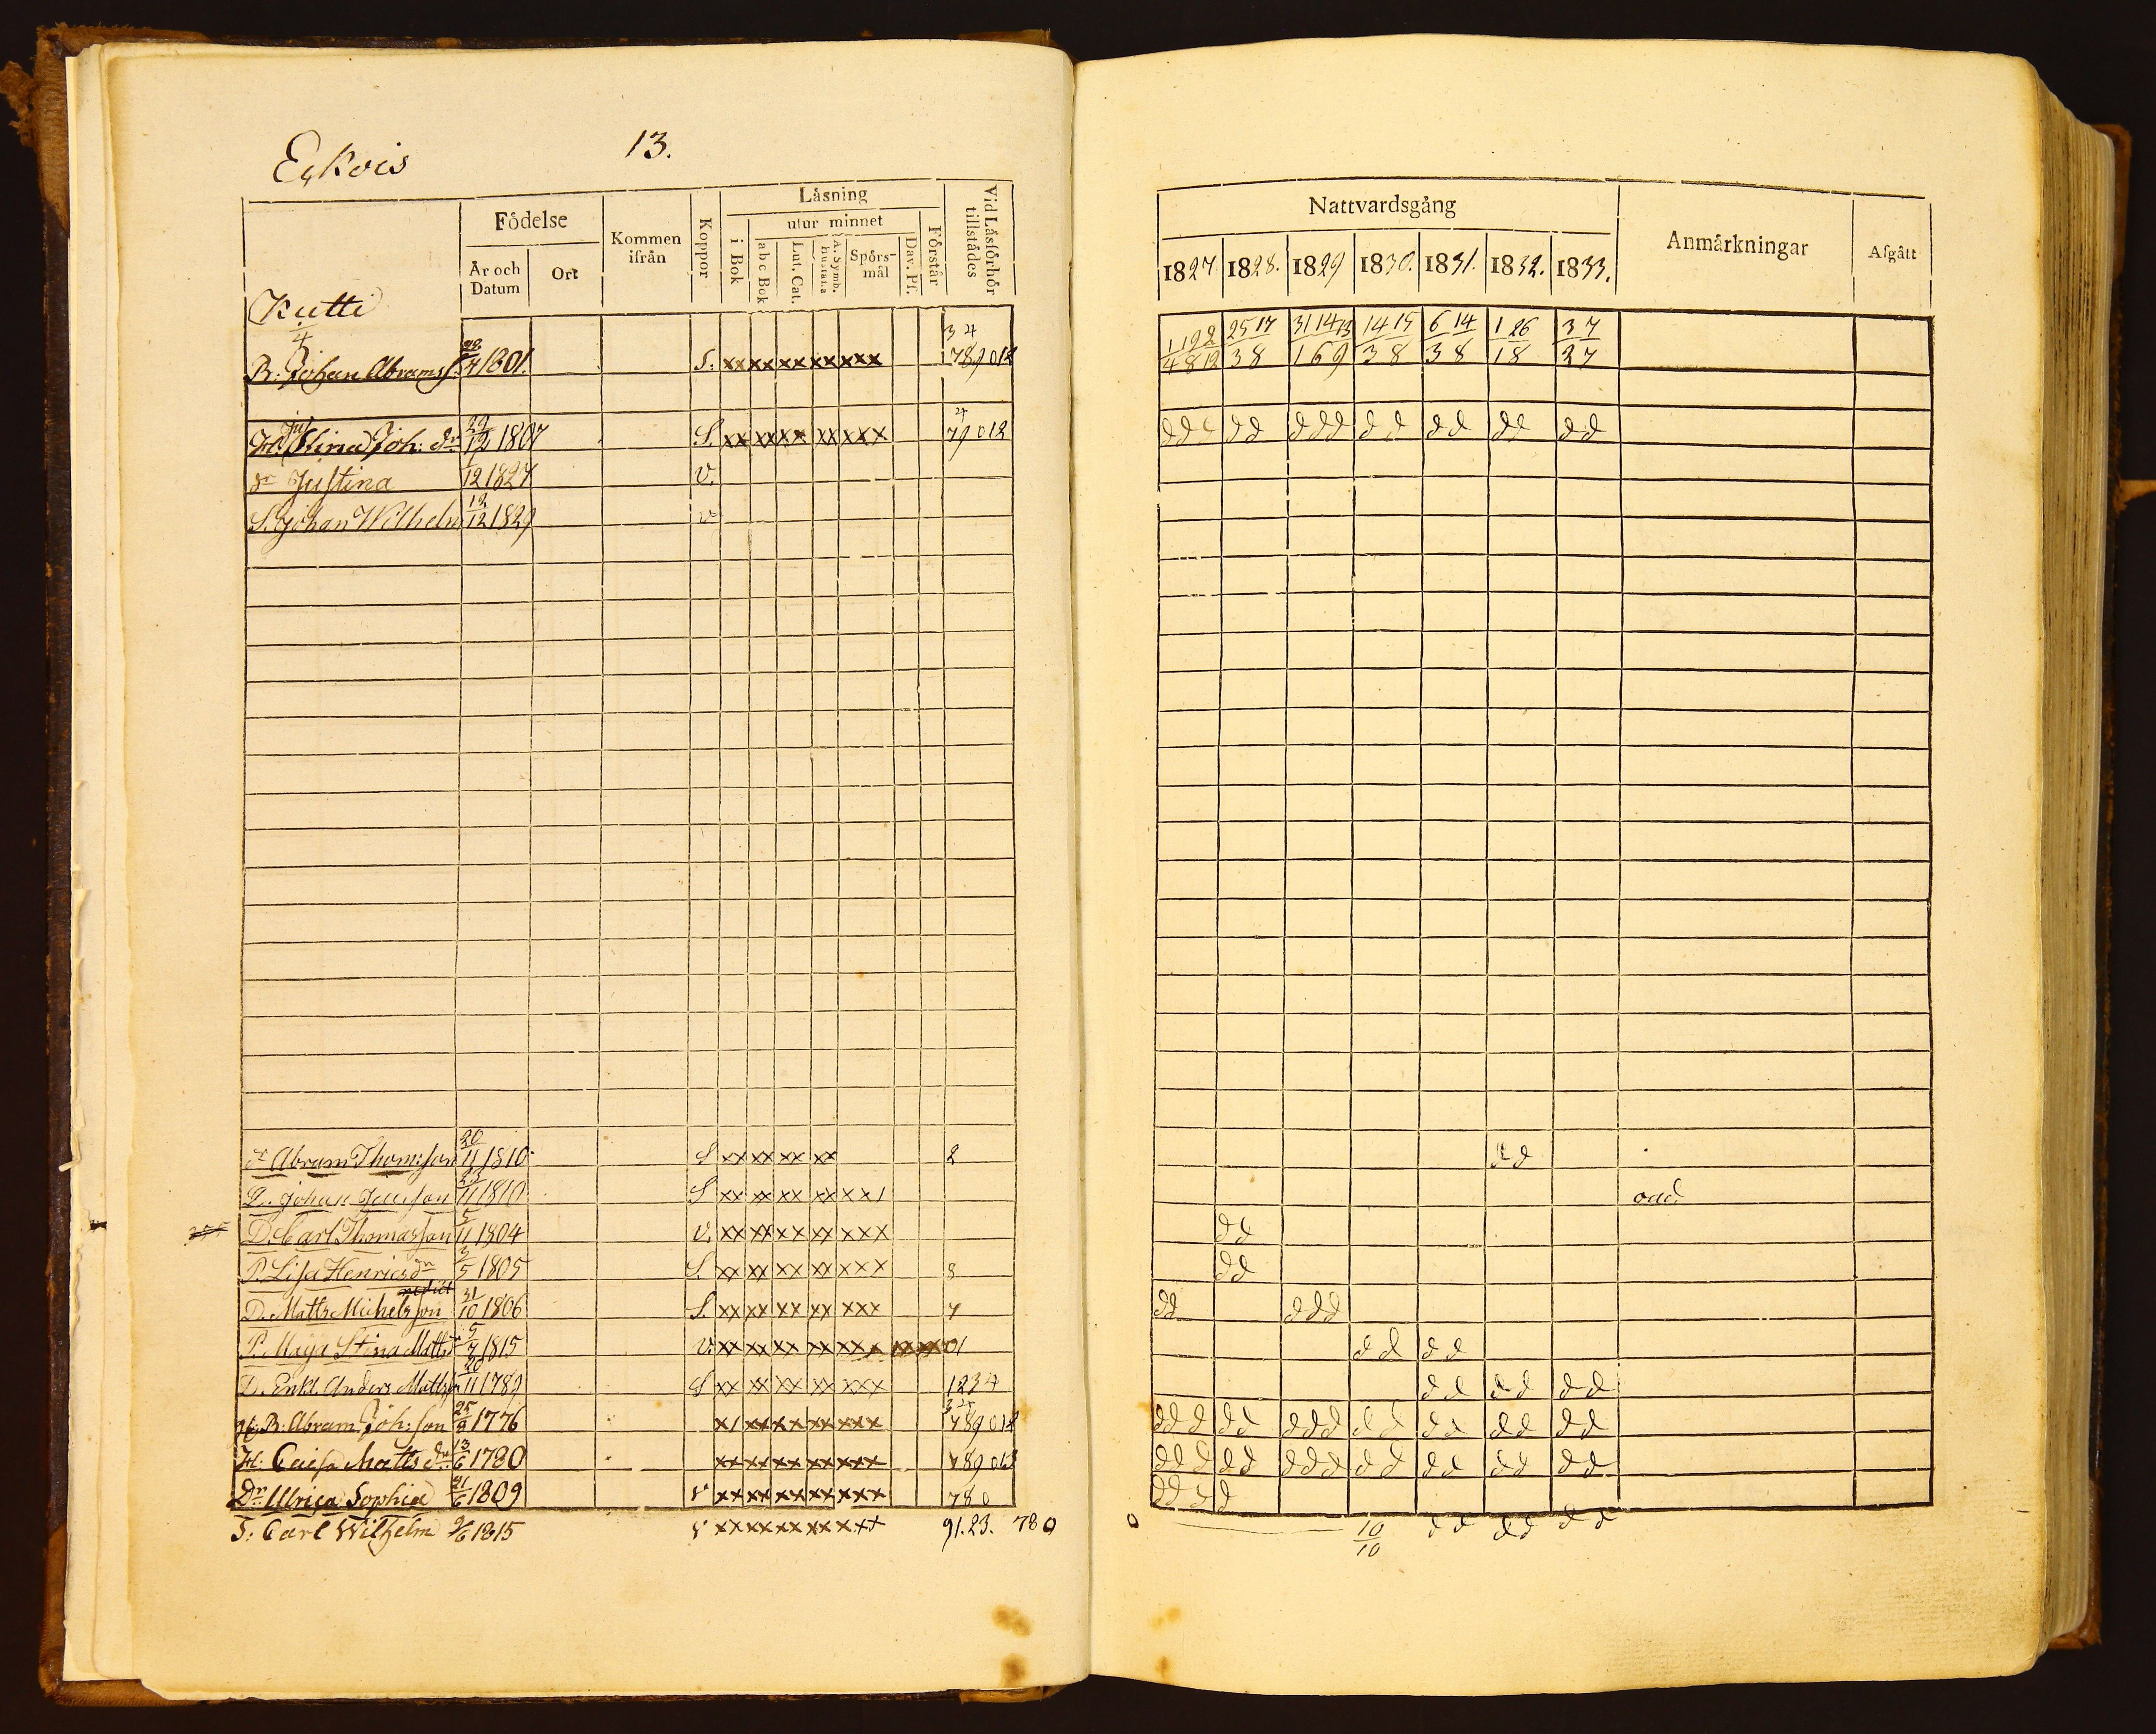 Eskois 13.
Födelse Kommen ifrån Koppor Läsning Vid Läsförhör tillstädes
utur minnet
År och Datum Ort i Bok a b c Bok Lut. Cat. A. Symb. Hustafla Spörs-mål Dav. Ps. Förstår
Nattvardsgång Anmärkningar Afgått
1827. 1828. 1829 1830. 1831. 1832. 1833.
Kutti
1/4
3 4
B: Johan Abramss. 28/4 1801. S. xx xx xx xx xxx 789012 1 19 2 / 4 8 12 25 17 / 3 8 31 14 13 / 1 6 9 14 15 / 3 8 6 14 / 3 8 1 26 / 1 8 3 7 / 2 7
H. Stina Joh: dr 22/12 1807 S. xx xx xx xx xxx 79012 d d d d d d d d d d d d d d d d
dr Justina 12 1827 v.
S. Johan Wilhelm 12/12 1829 v
dr Abram Thomsson 20/11 1810 S xx xx xx xx 2 d d
D. Johan Jansson 23/11 1810 S xx xx xx xx xx/
D. Carl Thomasson 5/11 1804 v. xx xx xx xx xxx d d
P. Lisa Henricsdr 3/5 1805 S. xx xx xx xx xxx 8 d d
D. Matts Michelsson 31/10 1806 S. xx xx xx xx xxx 7 d d d d d
P. Maja Stina Mattsdr 5/7 1815 v. xx xx xx xx xxx 01 d d d d
D. Enkl. Anders Mattss 20/11 1789 S xx xx xx xx xxx 1234 d d d d d d
3 4
B: Abram Joh:son 25/9 1776 x/ xx xx xx xxx 789012 d d d d d d d d d d d d d d d d
H: Caisa Matts dr 13/6 1780 xx xx xx xx xxx 789013 d d d d d d d d d d d d d d d d
Dr Ulrica Sophia 21/6 1809 v xx xx xx xx xxx 780 d d d d
S: Carl Wilhelm 9/6 1815 v xx xx xx xx xxx 91.23. 780 0 10/10 d d d d d d